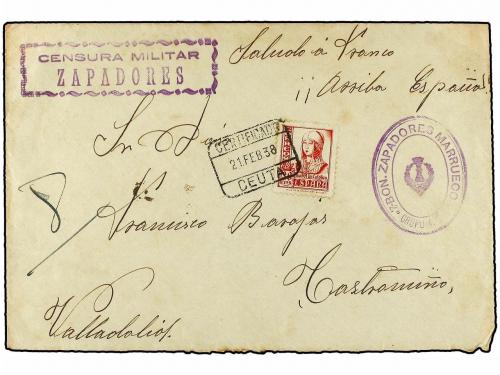 CENSURA MILITAR
ZAPADORES
Saludo á Franco
¡¡Arriba España!
Sr. D.
CERTIFICADO
21 FEB 38
CEUTA
ESPAÑA
2º BON. ZAPADORES MARRUECO
GRUPO
Francisco Barajas
Castromiño,
Valladolid.